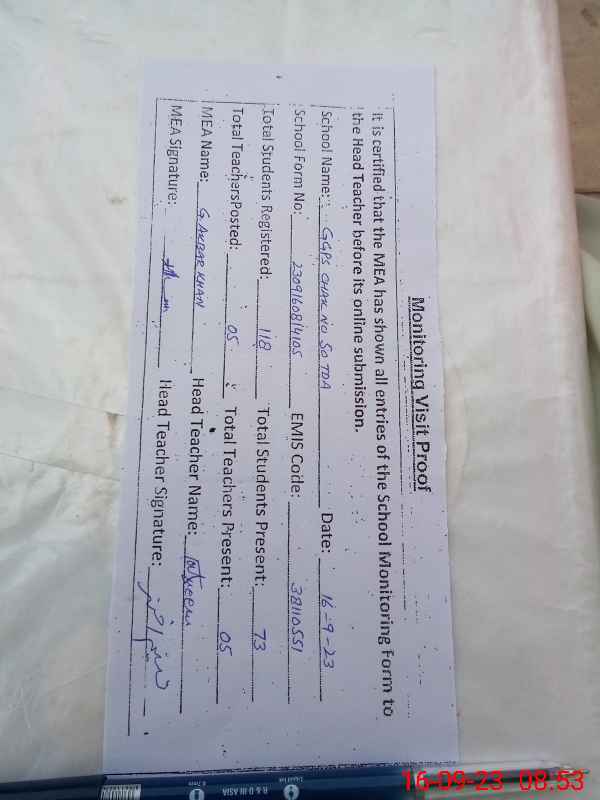 Monitoring Visit Proof
It is certified that the MEA has shown all entries of the School Monitoring Form to
the Head Teacher before its online submission.
School Name: GGPS CHAK NO 50 TDA Date: 16-9-23
School Form No: 23091608/4105 EMIS Code: 38110551
Total Students Registered: 118 Total Students Present: 73
Total TeachersPosted: 05 Total Teachers Present: 05
MEA Name: G.AKBAR KHAN Head Teacher Name:
MEA Signature: Head Teacher Signature:
R & D IN ASIA
0.7mm
16-09-23 08:53